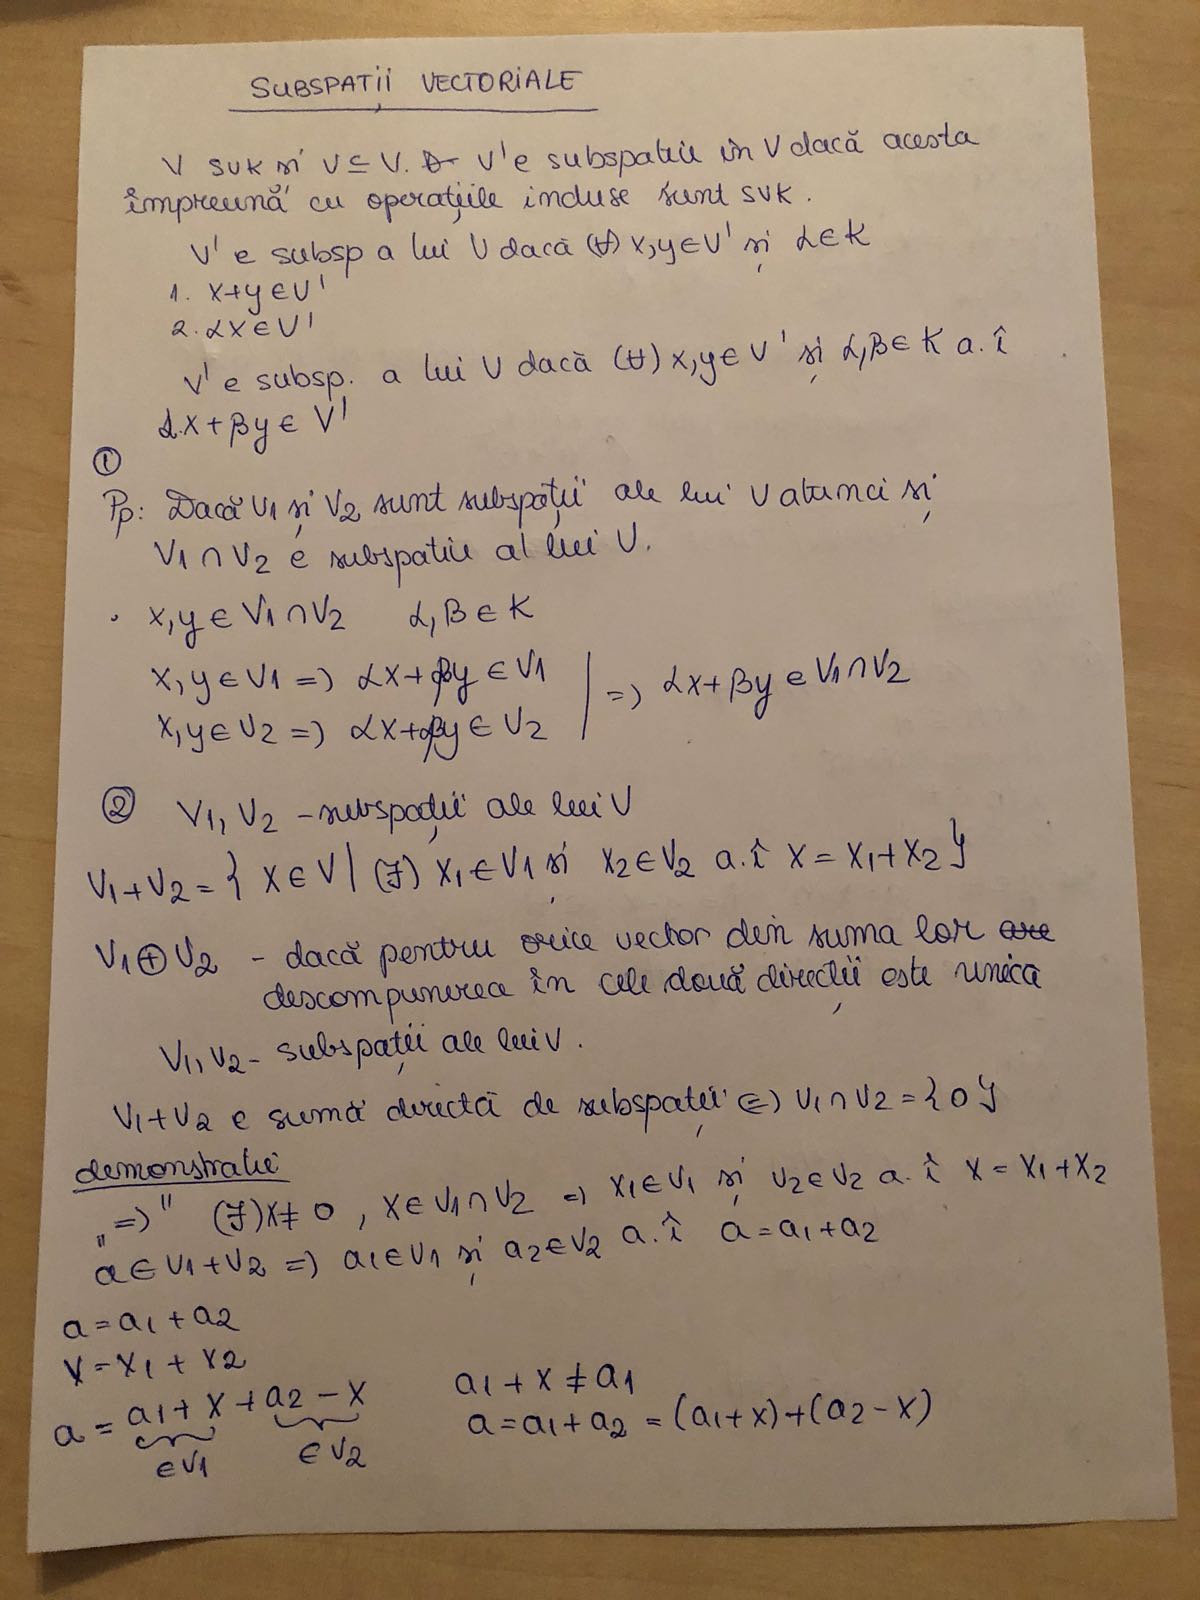 SUBSPAȚII VECTORIALE
V SVK și V ⊆ V. V' e subspatiu în V dacă acesta
împreună cu operațiile induse sunt SVK.
V' e subsp a lui V dacă (∀) x,y ∈ V' și α ∈ K
1. x+y ∈ V'
2. αx ∈ V'
V' e subsp. a lui V dacă (∀) x,y ∈ V' și α,β ∈ K a.î
α.x + βy ∈ V'
①
Pp: Dacă V1 și V2 sunt subspații ale lui V atunci și
V1 ∩ V2 e subspatiu al lui V.
• x,y ∈ V1 ∩ V2 α,β ∈ K
x,y ∈ V1 => αx + βy ∈ V1 | => αx + βy ∈ V1 ∩ V2
x,y ∈ V2 => αx + βy ∈ V2
② V1, V2 - subspații ale lui V
V1 + V2 = { x ∈ V | (∃) x1 ∈ V1 și x2 ∈ V2 a.î x = x1 + x2 }
V1 ⊕ V2 - dacă pentru orice vector din suma lor ~~are~~
descompunerea în cele două direcții este unica
V1, V2 - subspații ale lui V.
V1 + V2 e sumă directă de subspații <=> V1 ∩ V2 = { 0 }
demonstratie
„=>" (∃) x ≠ 0, x ∈ V1 ∩ V2 => x1 ∈ V1 și v2 ∈ V2 a.î x = x1 + x2
a ∈ V1 + V2 => a1 ∈ V1 și a2 ∈ V2 a.î a = a1 + a2
a = a1 + a2
x = x1 + x2
a = a1 + x + a2 - x a1 + x ≠ a1
∈ V1 ∈ V2 a = a1 + a2 = (a1 + x) + (a2 - x)